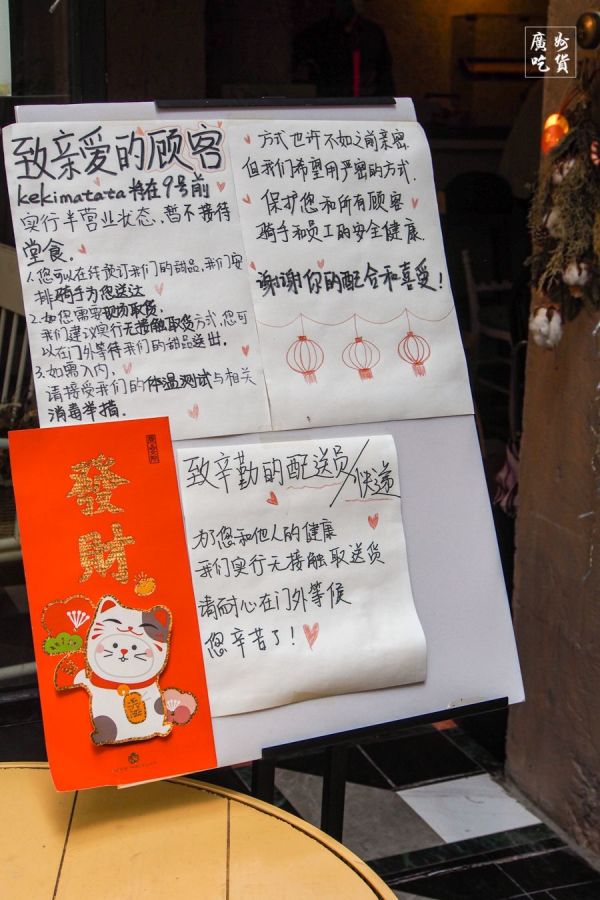 廣州
吃貨
致亲爱的顾客
kekimatata 将在9号前
实行半营业状态,暂不接待
堂食。
1.您可以在线预订我们的甜品,我们安
排骑手为您送达
2.如您需要现场取货,
我们建议实行无接触取货方式,您可
以在门外等待我们的甜品送出.
3.如需入内,
请接受我们的体温测试与相关
消毒举措.
方式也许不如之前亲密.
但我们希望用严密的方式.
保护您和所有顾客
骑手和员工的安全健康.
谢谢你的配合和喜爱!
致辛勤的配送员/快递
为您和他人的健康
我们实行无接触取送货
请耐心在门外等候
您辛苦了!
發
財